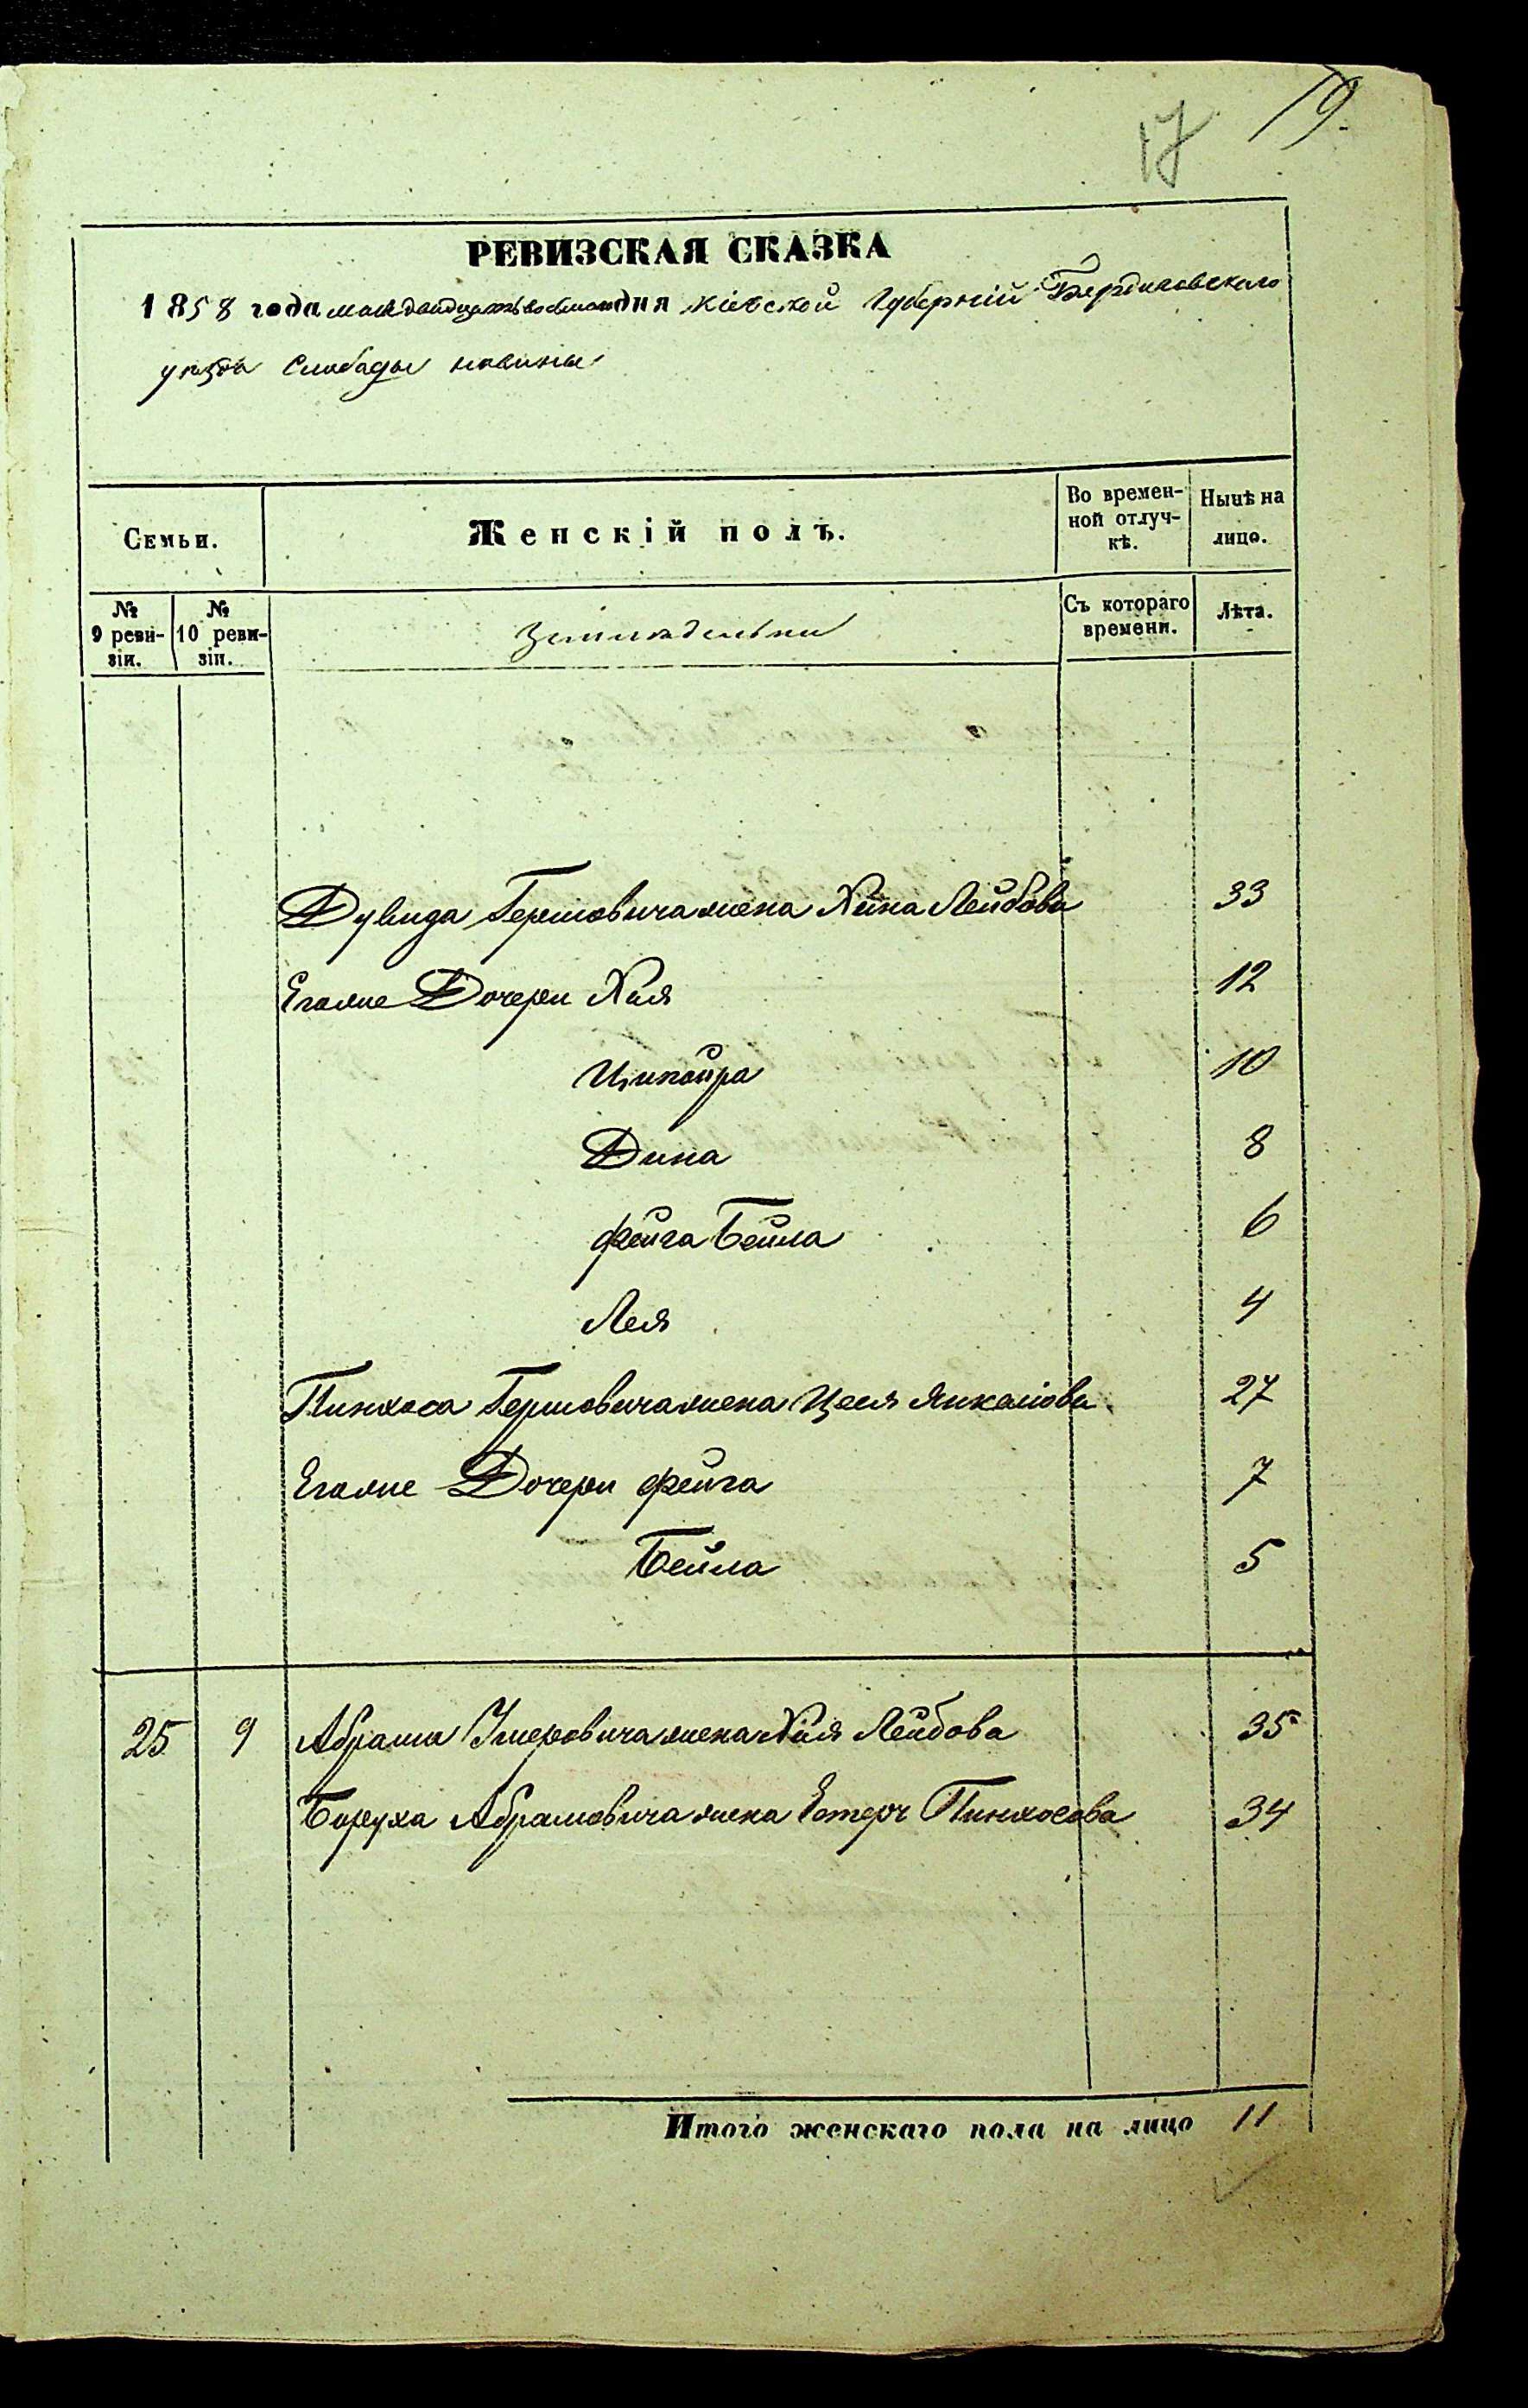 19.
17
РЕВИЗСКАЯ СКАЗКА
1858 года мая двадцать восьмого дня Кіевской Губерніи Бердичовскаго
уезда Слободы новины
Семьи.
Женскій полъ.
Во времен-
ной отлуч-
кѣ.
Нынѣ на
лицо.
№
9 реви-
зіи.
№
10 реви-
зіи.
Земледельцы
Съ котораго
времени.
Лѣта.
Дувида Гершовича жена Хина Лейбова 33
Егоже Дочери Хая 12
Ципойра 10
Дина 8
фейга Бейла 6
Лея 4
Пинхоса Гершовича жена Цеся Янкелова 27
Егоже Дочери фейга 7
Бейла 5
25 9 Абрама Умеровича жена Хая Лейбова 35
Боруха Абрамовича жена Естеръ Пинхосова 34
Итого женскаго пола на лицо 11